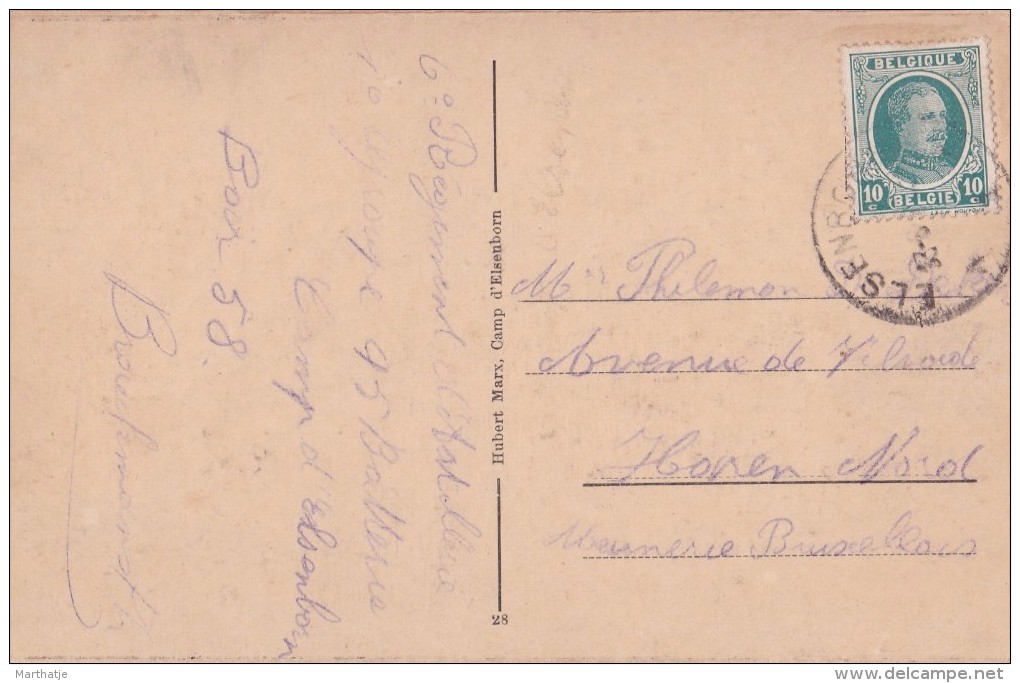 6e Régiment d'Artillerie
1e groupe 95 Batterie
Camp d'Elsenborn
Box 58.
Hubert Marx, Camp d'Elsenborn
28
BELGIQUE
10c 10c
BELGIE
ELSENBO
Mr Philemon
Avenue de Vilvorde
Haren Nord
Meunerie Bruxellois
Marthatje
delcampe.net